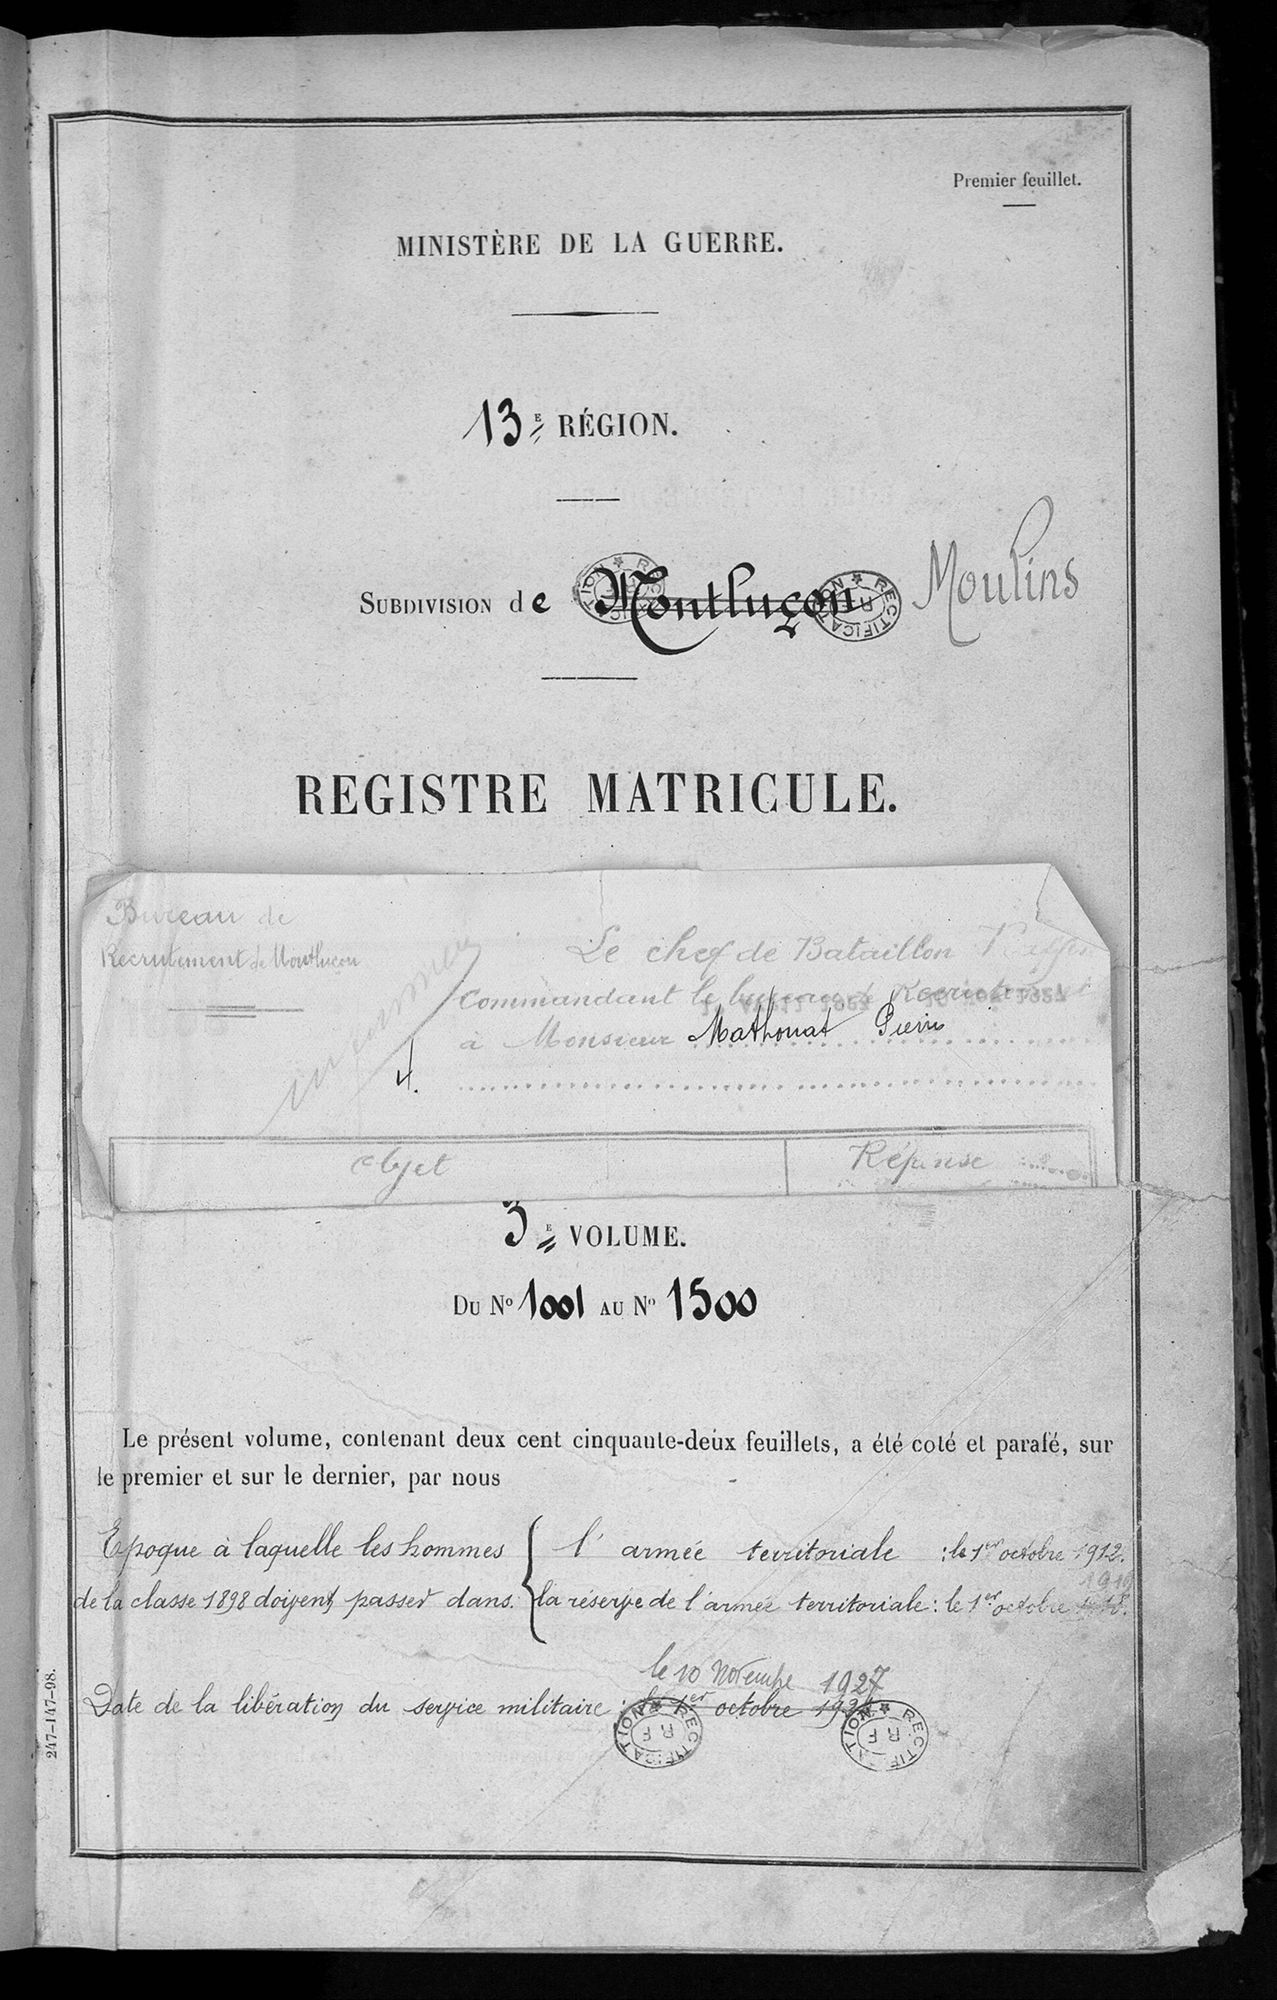 Premier feuillet.
MINISTÈRE DE LA GUERRE.
13E RÉGION.
SUBDIVISION de Montluçon Moulins
RECTIFICATION RF
RECTIFICATION RF
REGISTRE MATRICULE.
Bureau de
Recrutement de Montluçon
Le chef de Bataillon
Commandant le bureau de Recrutement
à Monsieur Mathonat Pierre
4.
Objet
Réponse
3E VOLUME.
DU No 1001 AU No 1500
Le présent volume, contenant deux cent cinquante-deux feuillets, a été coté et parafé, sur
le premier et sur le dernier, par nous
Epoque à laquelle les hommes { l'armée territoriale : le 1er octobre 1912.
de la classe 1898 doivent passer dans : la réserve de l'armée territoriale : le 1er octobre 1918.
le 10 Novembre 1927
Date de la libération du service militaire : le 1er octobre
RECTIFICATION RF
RECTIFICATION RF
247-147-98.